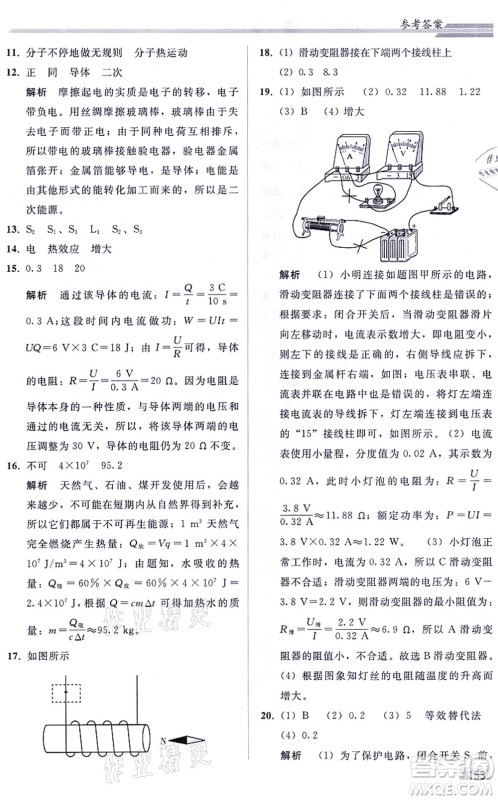 参考答案
11. 分子不停地做无规则 分子热运动
12. 正 同 导体 二次
解析 摩擦起电的实质是电子的转移，电子
带负电。用丝绸摩擦玻璃棒，玻璃棒因失去电
子而带正电；由于同种电荷互相排斥，
所以带电的玻璃棒接触验电器，验电器金属
箔张开；金属箔能够导电，是导体；电能是由
其他形式的能转化而来的，所以电能属于二
次能源。
13. S₂ S₃ L₁ S₂、S₃
14. 电 热效应 增大
15. 0.3 18 20
解析 通过该导体的电流：I＝Q/t＝3 C/10 s＝
0.3 A；这段时间内电流做功：W＝UIt＝
UQ＝6 V×3 C＝18 J；由 I＝U/R 可得，导体
的电阻：R＝U/I＝6 V/0.3 A＝20 Ω。因为导体的电
阻是导体本身的一种性质，与导体两端的电压和
通过的电流无关，所以，当导体两端的电压增
大到 30 V 时，导体的电阻仍为 20 Ω 不变。
16. 不可 4×10⁷ 95.2
解析 天然气、石油、煤开发利用后，在自然
界不可能在短期内从自然界得到补充，
所以它们都属于不可再生能源；1 m³ 天然气
完全燃烧放出热量：Q放＝Vq＝1 m³×4×
10⁷ J/m³＝4×10⁷ J；由题知，水吸收的热
量：Q吸＝60％×Q放＝60％×4×10⁷ J＝
2.4×10⁷ J；由 Q吸＝cmΔt 可得，水的质
量：m＝Q吸/cΔt＝95.2 kg。
17. 如图所示
N
18. （1）滑动变阻器接在下端两个接线柱上
（2）0.3 8.3
19. （1）如图所示 （2）0.32 11.88 1.22
（3）B （4）增大
A
V
解析 （1）小明连接如题图甲所示的电路，
滑动变阻器接在下端两个接线柱是错误的；
题图乙要求：闭合开关后，滑动变阻器滑片
向左移动时，电流表示数增大，即电路中的
电阻变小，则滑动变阻器应将左下方的接线
柱接到金属杆右端；由图知，电压表串联在
电路中，电流表并联在灯两端是错误的，电
流表应与灯串联，灯左端与电压表
的“15”接线柱相连，如图所示。（2）电流
表使用小量程，分度值为 0.02 A，电流为
0.32 A，此时小灯泡的电阻：R＝U/I＝
3.8 V/0.32 A≈11.88 Ω；额定功率为：P＝UI＝
3.8 V×0.32 A≈1.22 W。（3）小灯泡正
常工作时，电路中的电流为 0.32 A，滑动变
阻器两端的电压为 6 V－3.8 V＝2.2 V，
则滑动变阻器接入电路中的最小阻值为：
R滑＝U滑/I＝2.2 V/0.32 A≈6.9 Ω，所以 A 滑动变
阻器的最大阻值太小，故选 B 滑动变阻器。
（4）图象可知灯丝的电阻随温度的升高而
增大。
20. （1）B （2）0.2 （3）5 等效替代法
（4）0.2
解析 （1）为了保护电路，闭合开关 S 前，
153
作业精灵
作业精灵